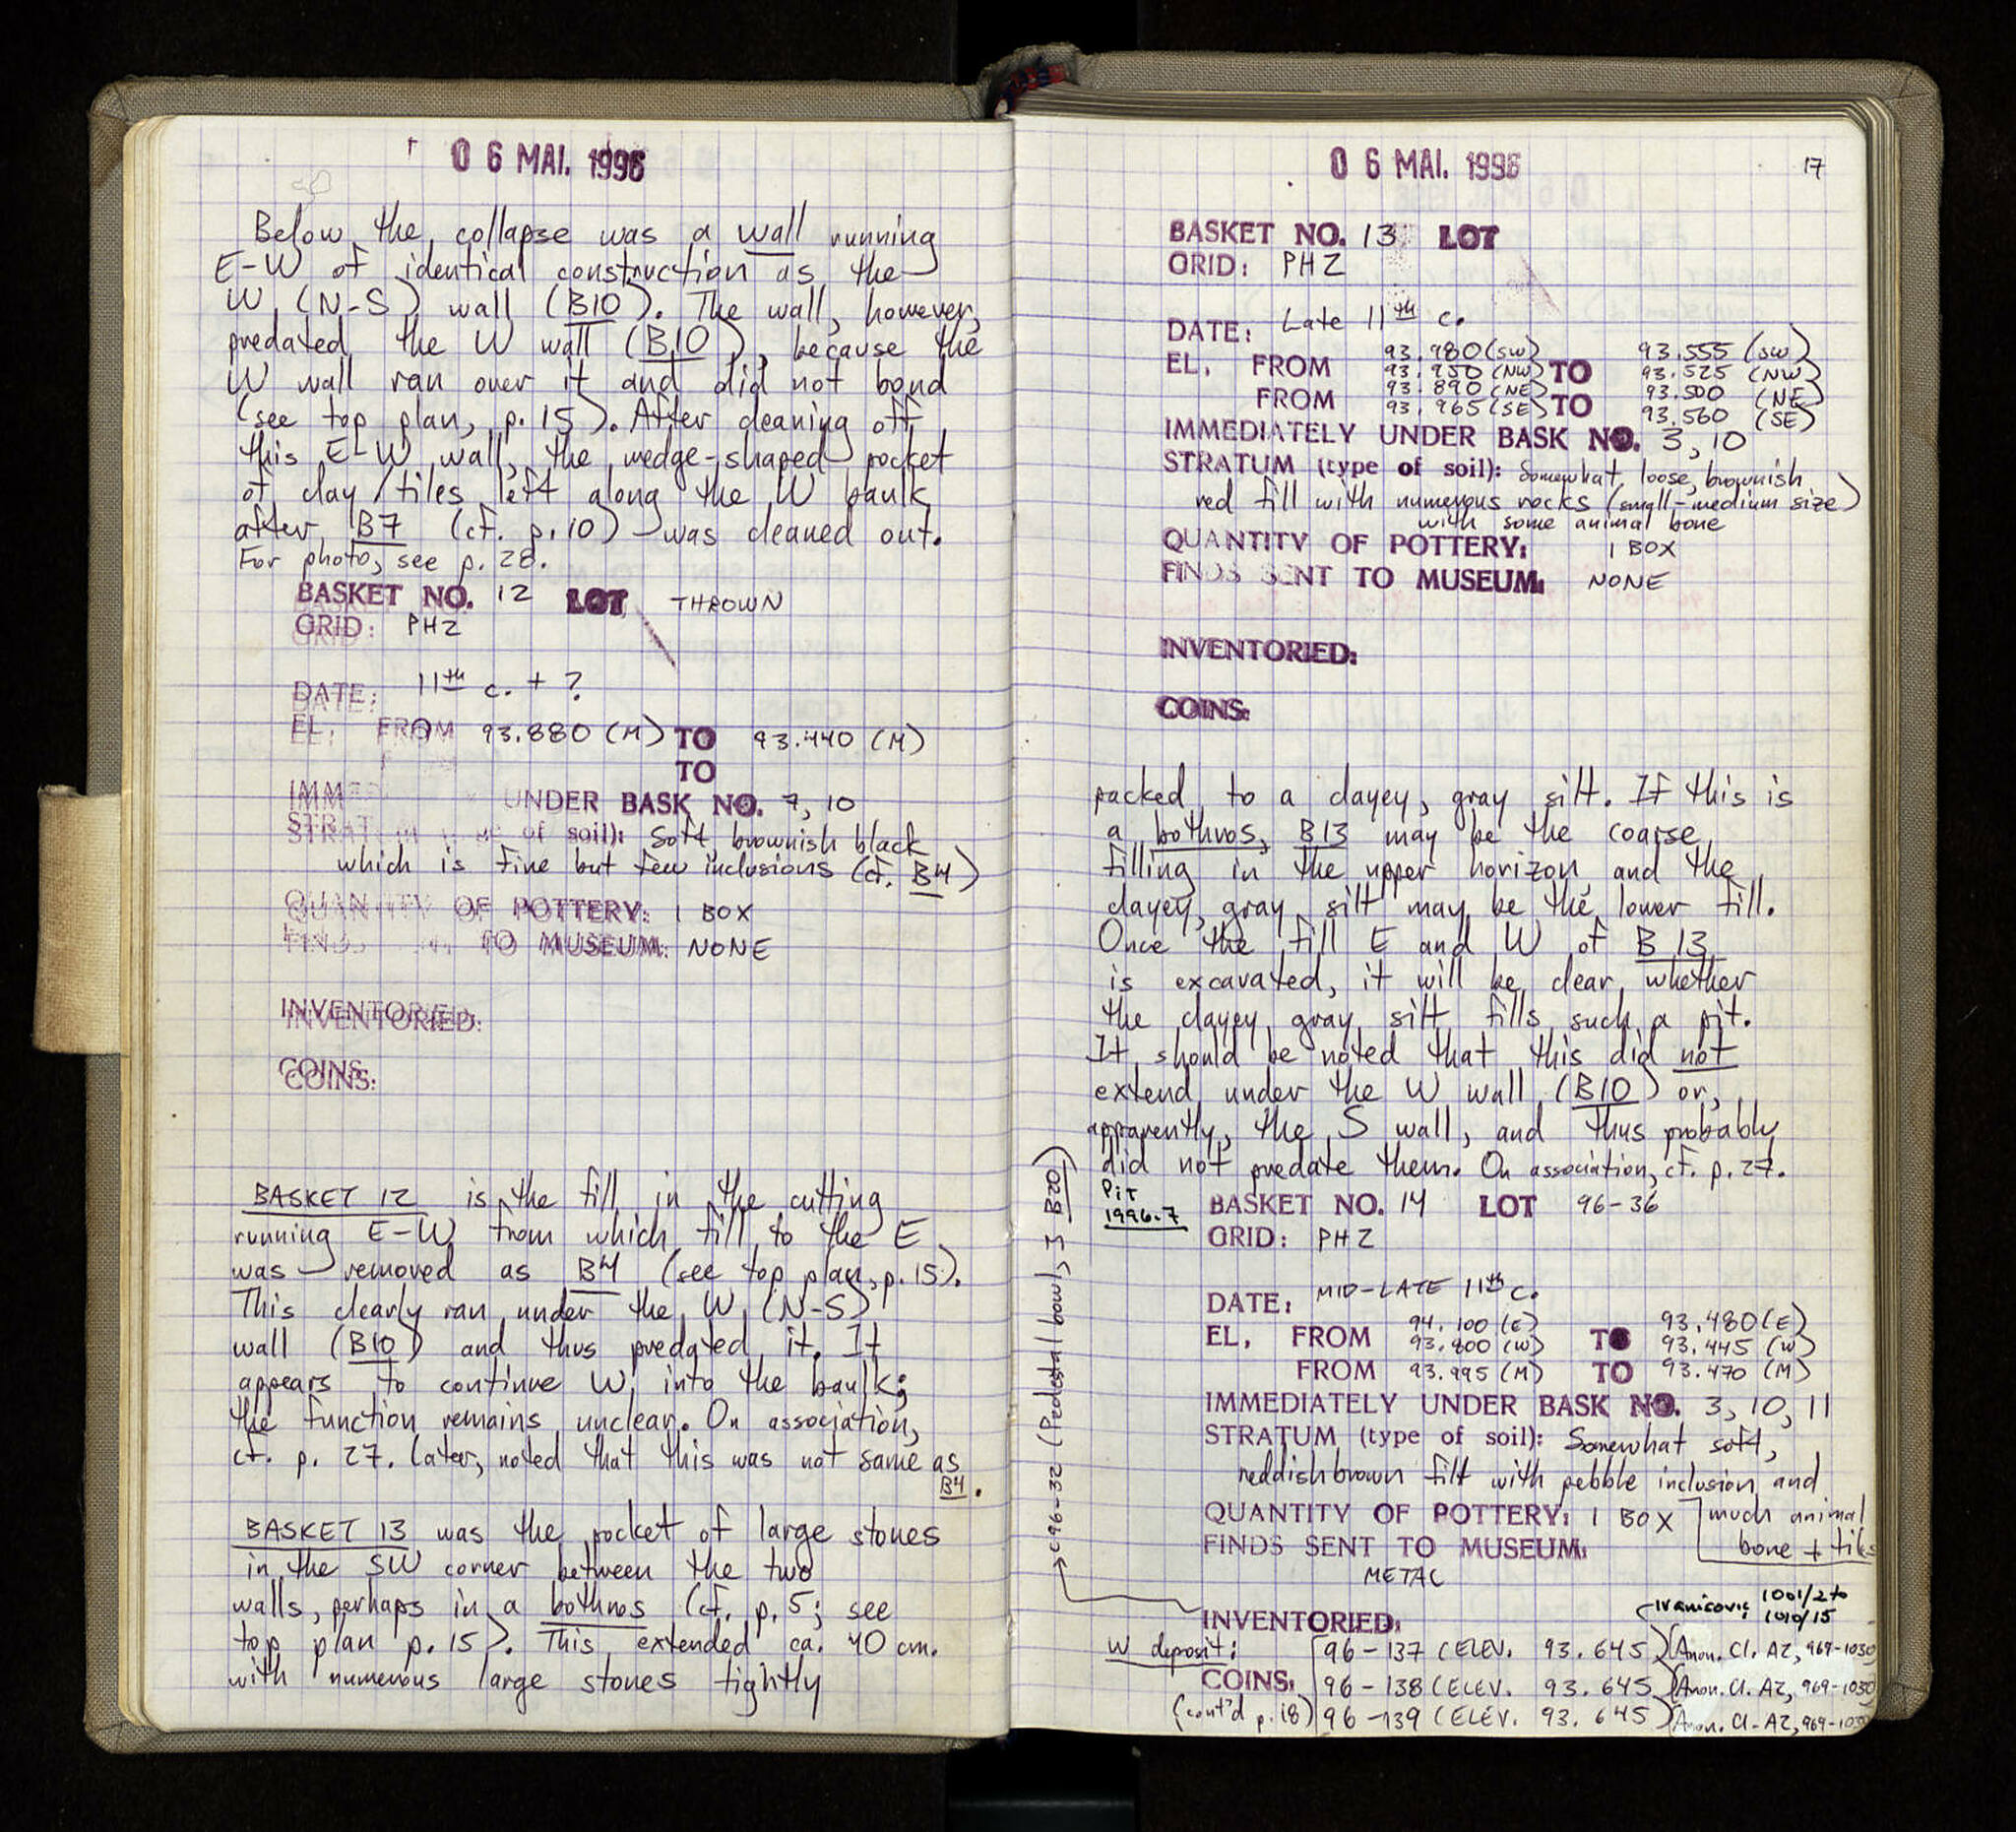 0 6 MAI. 1996
Below the collapse was a wall running
E-W of identical construction as the
W (N-S) wall (B10). The wall, however,
predated the W wall (B10), because the
W wall ran over it and did not bond
(see top plan, p. 15). After cleaning off
this E-W wall, the wedge-shaped pocket
of clay/tiles left along the W baulk
after B7 (cf. p. 10) was cleaned out.
For photo, see p. 28.
BASKET NO. 12 LOT THROWN
GRID: PHZ
DATE: 11th c. + ?
EL. FROM 93.880 (M) TO 93.440 (M)
TO
IMM UNDER BASK NO. 7, 10
STRAT of soil): Soft, brownish black
which is fine but few inclusions (cf. B4)
QUANTITY OF POTTERY: 1 BOX
FINDS TO MUSEUM: NONE
INVENTORIED:
COINS:
BASKET 12 is the fill in the cutting
running E-W from which fill to the E
was removed as B4 (see top plan, p. 15).
This clearly ran under the W (N-S)
wall (B10) and thus predated it. It
appears to continue W into the baulk;
the function remains unclear. On association,
cf. p. 27. Later, noted that this was not same as
B4.
BASKET 13 was the pocket of large stones
in the SW corner between the two
walls, perhaps in a bothros (cf. p. 5; see
top plan p. 15). This extended ca. 40 cm.
with numerous large stones tightly
0 6 MAI. 1996
17
BASKET NO. 13 LOT
GRID: PHZ
DATE: Late 11th c.
93.980 (SW) 93.555 (SW)
EL. FROM 93.950 (NW) TO 93.525 (NW)
93.890 (NE) 93.500 (NE)
FROM 93.965 (SE) TO 93.560 (SE)
IMMEDIATELY UNDER BASK NO. 3, 10
STRATUM (type of soil): Somewhat loose, brownish
red fill with numerous rocks (small-medium size)
with some animal bone
QUANTITY OF POTTERY: 1 BOX
FINDS SENT TO MUSEUM: NONE
INVENTORIED:
COINS:
packed to a clayey, gray silt. If this is
a bothros, B13 may be the coarse
filling in the upper horizon and the
clayey, gray silt may be the lower fill.
Once the fill E and W of B 13
is excavated, it will be clear whether
the clayey gray silt fills such a pit.
It should be noted that this did not
extend under the W wall (B10) or,
apparently, the S wall, and thus probably
did not predate them. On association, cf. p. 27.
Pit
1996-7
BASKET NO. 14 LOT 96-36
GRID: PHZ
DATE: MID-LATE 11th c.
94.100 (E) 93.480 (E)
EL. FROM 93.800 (W) TO 93.445 (W)
FROM 93.995 (M) TO 93.470 (M)
IMMEDIATELY UNDER BASK NO. 3, 10, 11
STRATUM (type of soil): Somewhat soft,
reddish brown fill with pebble inclusion and
QUANTITY OF POTTERY: 1 BOX much animal
bone + tiles
FINDS SENT TO MUSEUM:
METAL
C96-32 (Pedestal bowl, 3 B20)
Ivanisovic: 1001/2 to
1010/15
INVENTORIED:
W deposit: 96-137 (ELEV. 93.645) (Anon. Cl. A2, 969-1030)
COINS: 96-138 (ELEV. 93.645) (Anon. Cl. A2, 969-1030)
(cont'd p. 18) 96-139 (ELEV. 93.645) (Anon. Cl. A2, 969-1030)